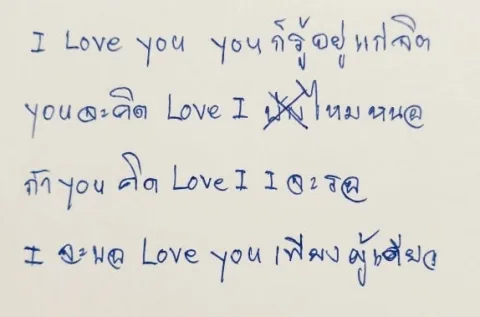 I Love you you ก็รู้อยู่แก่จิต
you จะคิด Love I ไหมหนอ
ถ้า you คิด Love I I จะรอ
I จะขอ Love you เพียงผู้เดียว